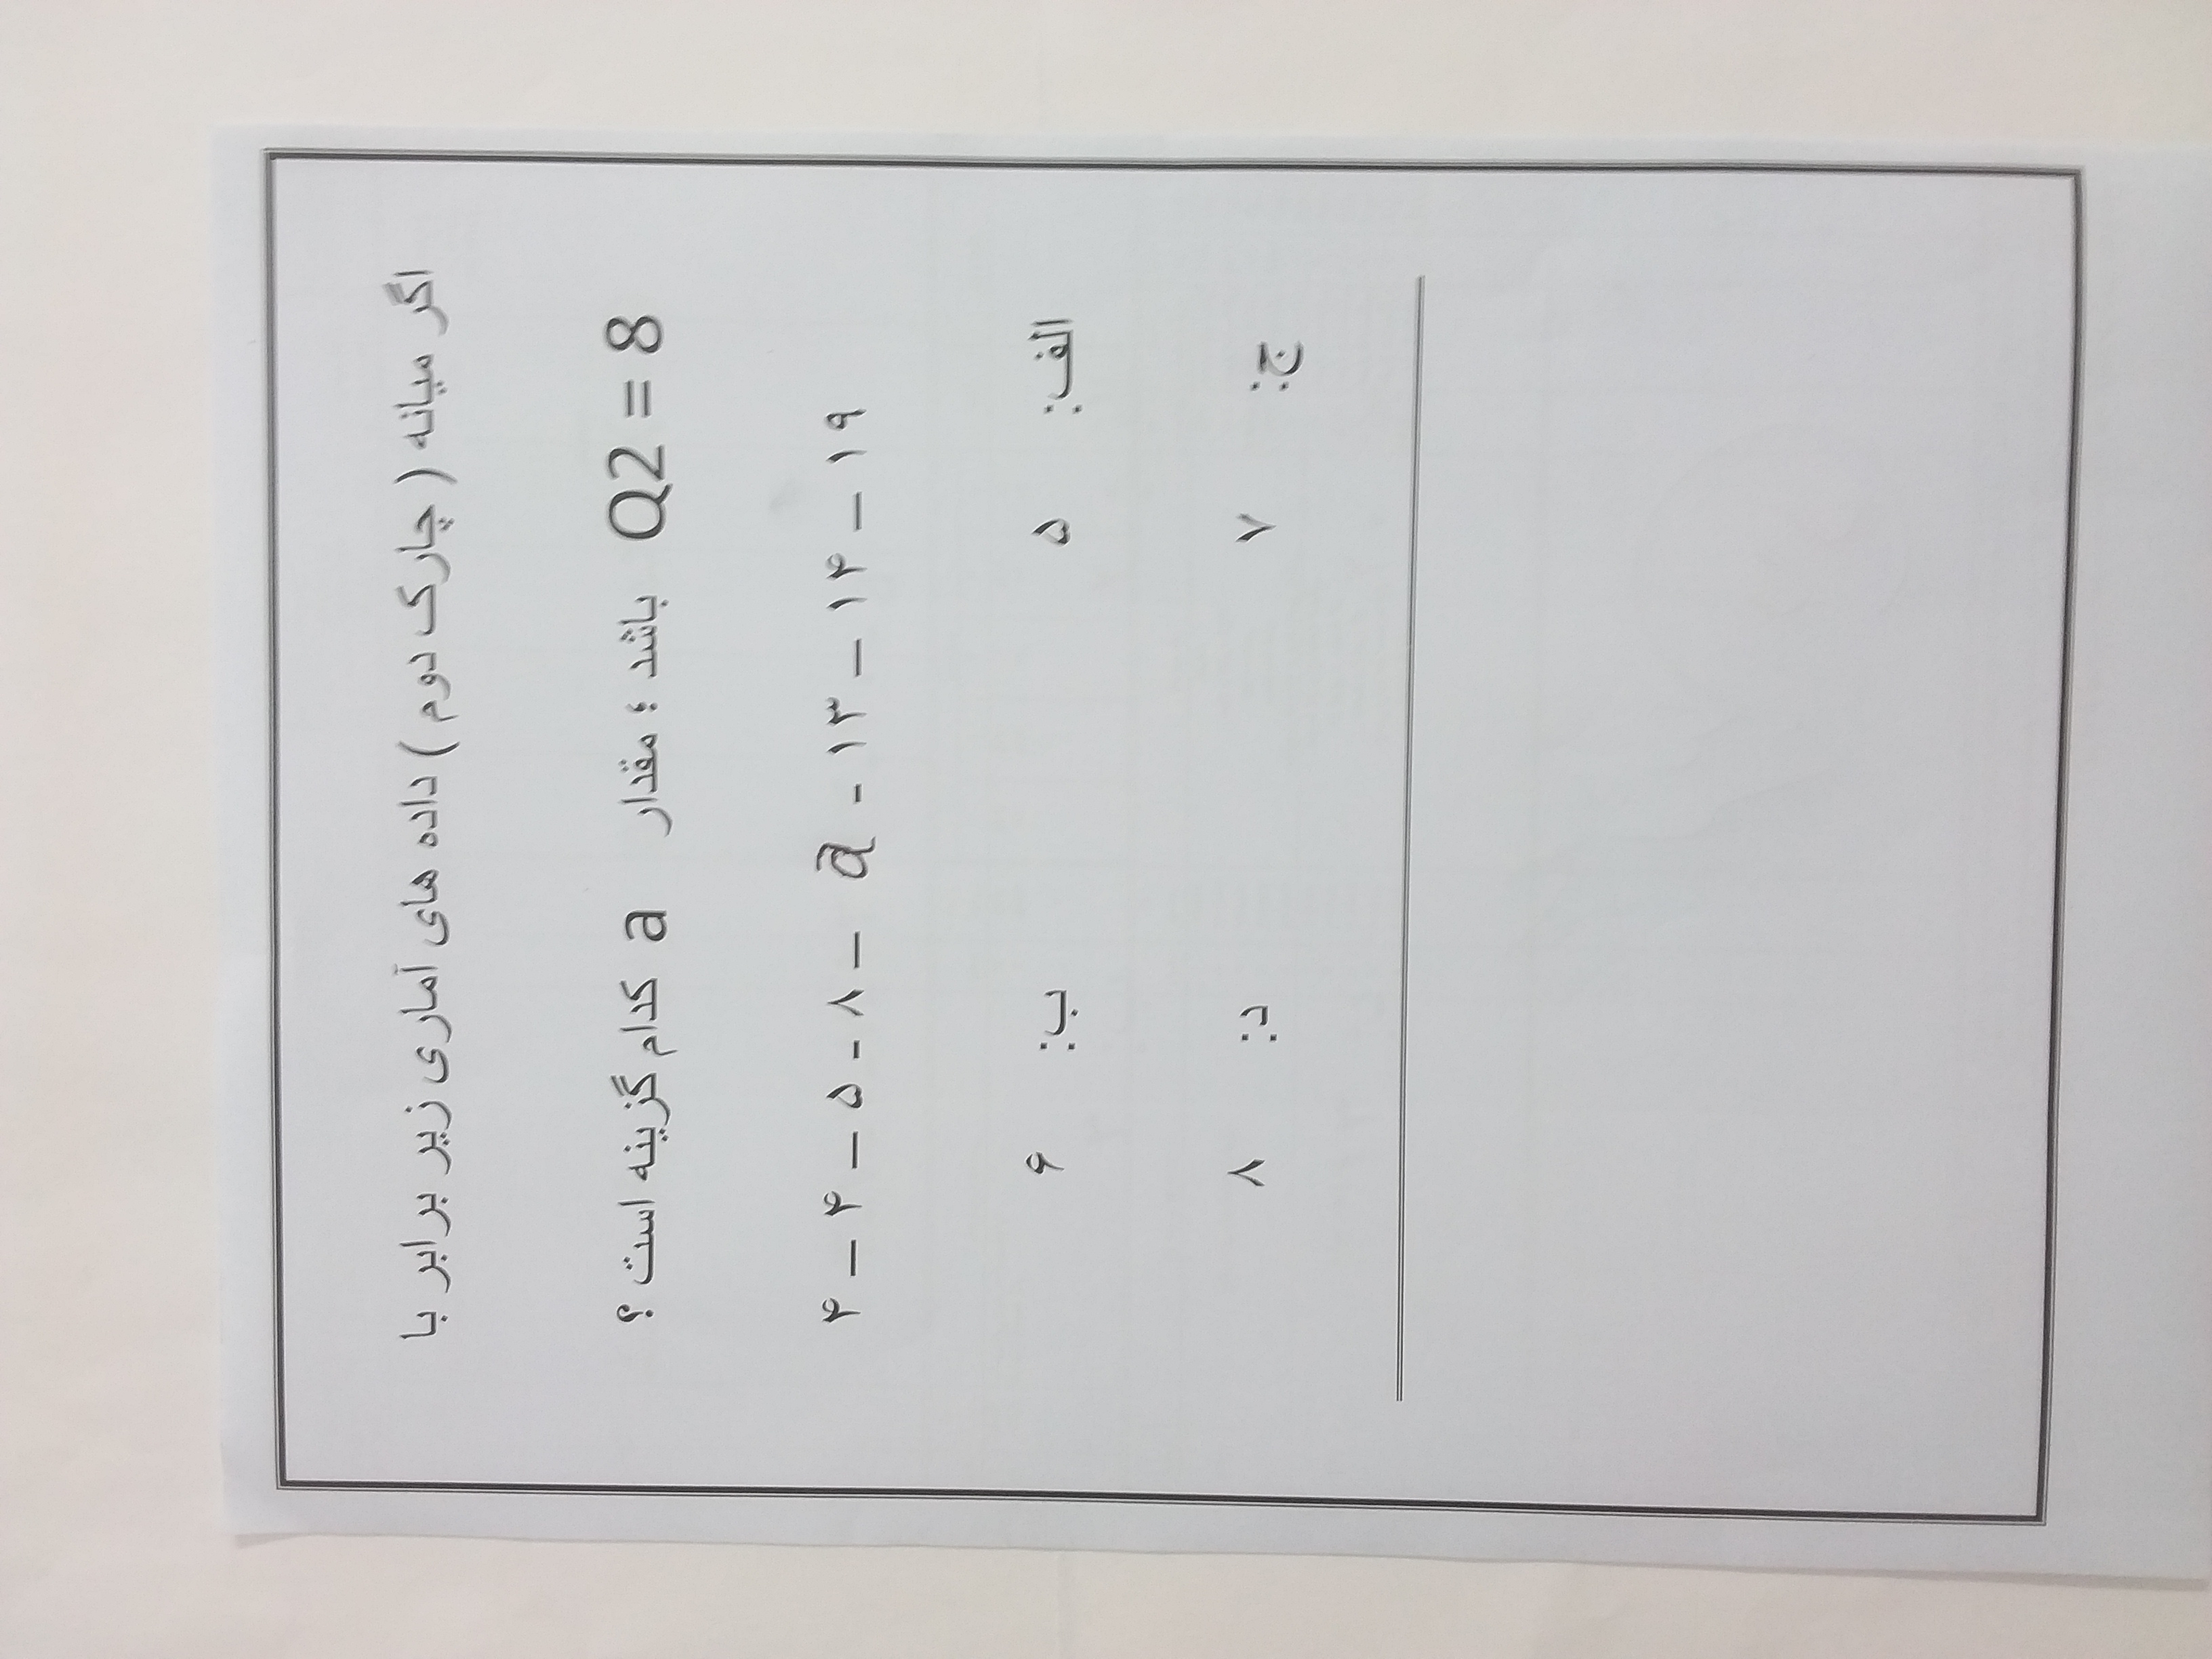 اگر میانه ( چارک دوم ) داده های آماری زیر برابر با
Q2 = 8 باشد ؛ مقدار a کدام گزینه است ؟
۴ – ۴ – ۵ - ۸ – a - ۱۳ – ۱۴ – ۱۹
الف: ۵ ب: ۶
ج: ۷ د: ۸